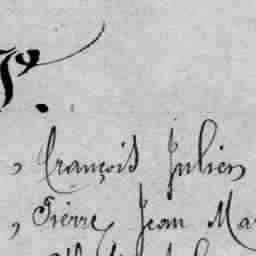 , François Julien
, Pierre Jean Ma